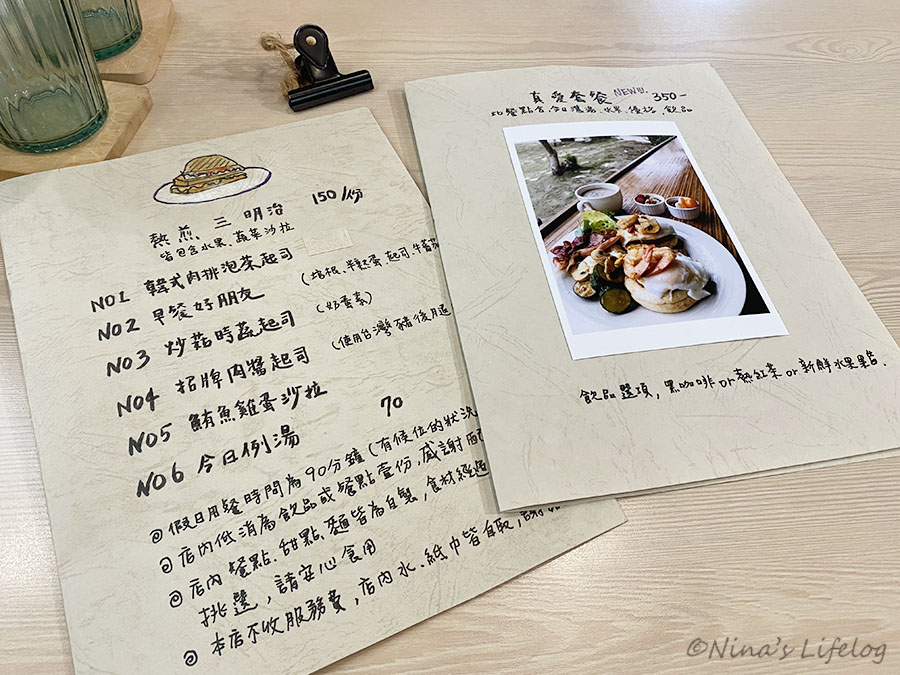 熱煎 三明治 150/份
皆包含水果、蔬菜沙拉
NO1 韓式肉排泡菜起司
NO2 早餐好朋友 (培根、半熟蛋、起司、牛蕃茄
NO3 炒菇時蔬起司 (奶蛋素)
NO4 招牌肉醬起司 (使用台灣豬後腿
NO5 鮪魚雞蛋沙拉
NO6 今日例湯 70
◎ 假日用餐時間為90分鐘 (有候位的狀況
◎ 店內低消為飲品或餐點壹份，感謝配
◎ 店內餐點、甜點、麵皆為自製，食材經過
挑選，請安心食用
◎ 本店不收服務費，店內水、紙巾皆自取，謝謝
真愛套餐 NEW!! 350-
此餐點含今日濃湯、水果、優格、飲品
飲品選項，黑咖啡or熱紅茶or新鮮水果醋.
©Nina's Lifelog